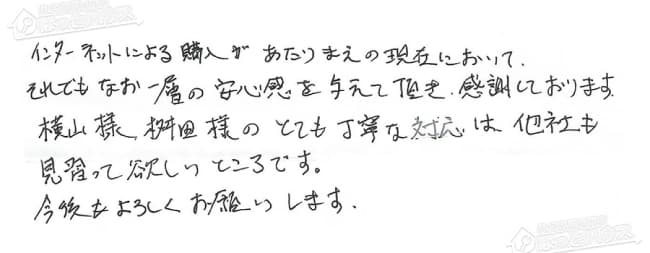 インターネットによる購入があたりまえの現在において、
それでもなお一層の安心感を与えて頂き、感謝しております。
横山様、桝田様のとても丁寧な対応は、他社も
見習って欲しいところです。
今後もよろしくお願いします。